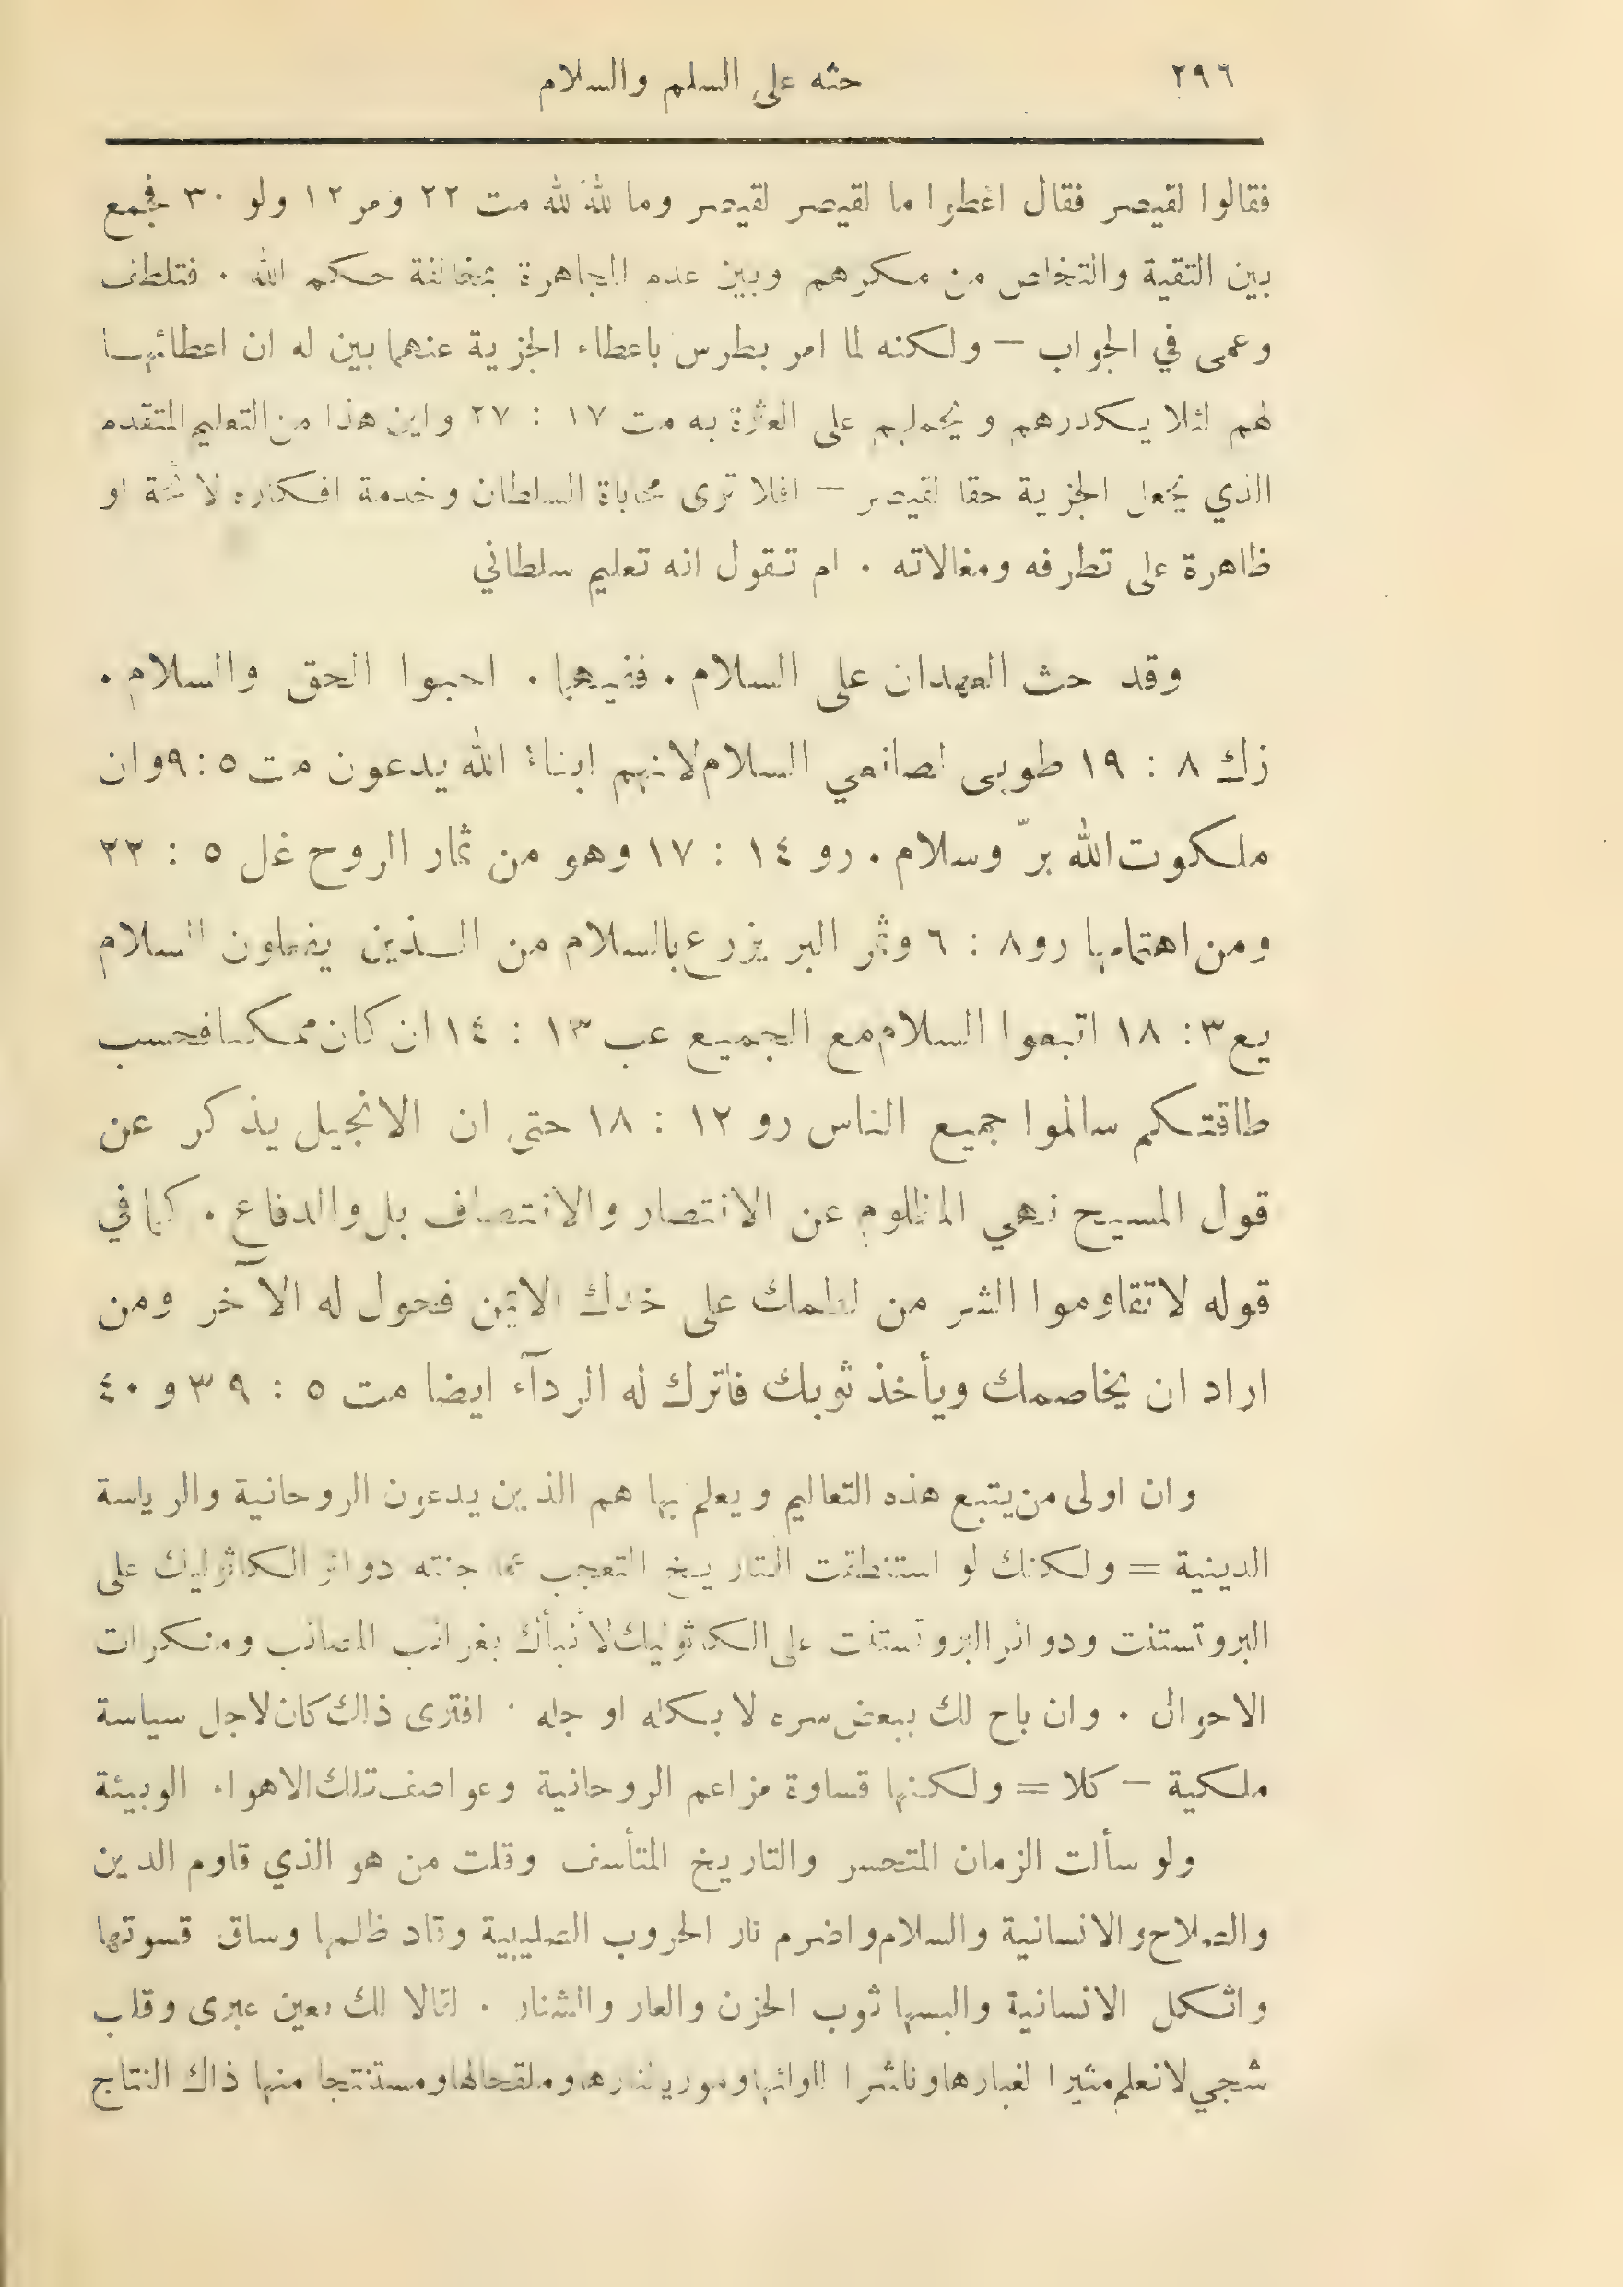 ٢٩٦ حثه على السلم والسلام
فقالوا لقيصر فقال اعطوا ما لقيصر لقيصر وما لله لله مت ٢٢ ومر ١٢ ولو ٣٠ فجمع
بين التقية والتخاص من مكرهم وبين عدم المجاهرة بمخالفة حكم الله . فتلطف
وعمى في الجواب — ولكنه لما امر بطرس باعطاء الجزية عنهما بين له ان اعطائها
لهم لئلا يكدرهم ويحملهم على العثرة به مت ١٧ : ٢٧ واين هذا من التعليم المتقدم
الذي يجعل الجزية حقا لقيصر — افلا ترى محاباة السلطان وخدمة افكاره لائحة او
ظاهرة على تطرفه ومغالاته . ام تقول انه تعليم سلطاني
وقد حث العهدان على السلام . ففيهما . احبوا الحق والسلام .
زك ٨ : ١٩ طوبى لصانعي السلام لانهم ابناء الله يدعون مت ٥ : ٩ وان
ملكوت الله برّ وسلام . رو ١٤ : ١٧ وهو من ثمار الروح غل ٥ : ٢٢
ومن اهتمامها رو ٨ : ٦ وثمر البر يزرع بالسلام من الذين يفعلون السلام
يع ٣ : ١٨ اتبعوا السلام مع الجميع عب ١٣ : ١٤ ان كان ممكنا فحسب
طاقتكم سالموا جميع الناس رو ١٢ : ١٨ حتى ان الانجيل يذكر عن
قول المسيح نهي المظلوم عن الانتصار والانتصاف بل والدفاع . كما في
قوله لا تقاوموا الشر من لطمك على خدك الايمن فحول له الآخر ومن
اراد ان يخاصمك ويأخذ ثوبك فاترك له الردآء ايضا مت ٥ : ٣٩ و ٤٠
وان اولى من يتبع هذه التعاليم ويعلم بها هم الذين يدعون الروحانية والرياسة
الدينية = ولكنك لو استنطقت التاريخ التعجب مما جنته دوائر الكاثوليك على
البروتستنت ودوائر البروتستنت على الكاثوليك لأنبأك بغرائب المصائب ومنكرات
الاحوال . وان باح لك ببعض سره لا بكله او جله . افترى ذلك كان لاجل سياسة
ملكية — كلا = ولكنها قساوة مزاعم الروحانية وعواصف تلك الاهواء الوبيئة
ولو سألت الزمان المتحسر والتاريخ المتأسف وقلت من هو الذي قاوم الدين
والصلاح والانسانية والسلام واضرم نار الحروب الصليبية وقاد ظالمها وساق قسوتها
واثكل الانسانية والبسها ثوب الحزن والعار والشنار . لقالا لك بعين عبرى وقلب
شجي لا نعلم مثيرا لغبارها وناشرا للوائها وموريا لنارها وملقحا لها ومستنتجا منها ذاك النتاج